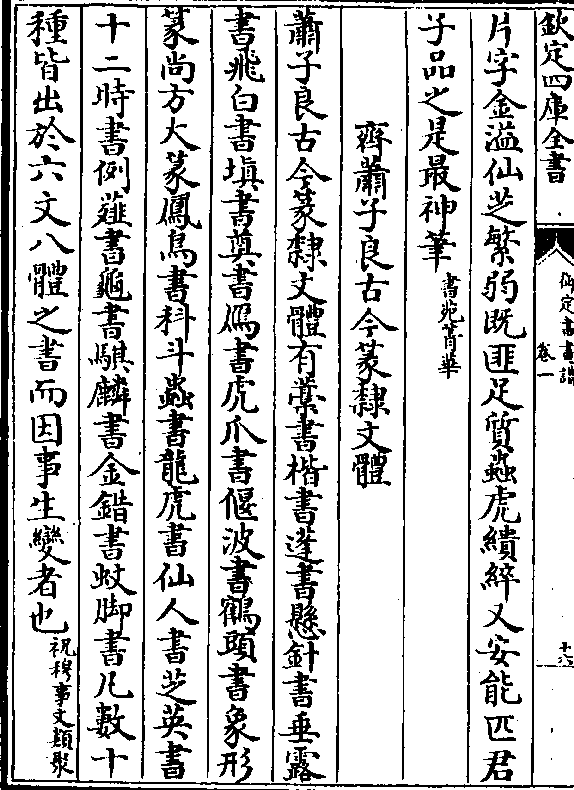 欽定四庫全書
御定書畫譜
卷一
十六
片字金溢仙芝繁弱既匪足質蟲虎績綷又安能匹君
子品之是最神筆書苑菁華
齊蕭子良古今篆隸文體
蕭子良古今篆隸文體有槀書楷書蓬書懸針書垂露
書飛白書填書奠書鳥書虎爪書偃波書鶴頭書象形
篆尚方大篆鳳鳥書科斗蟲書龍虎書仙人書芝英書
十二時書倒薤書龜書騏驎書金錯書蚊脚書凡數十
種皆出於六文八體之書而因事生變者也祝穆事文類聚